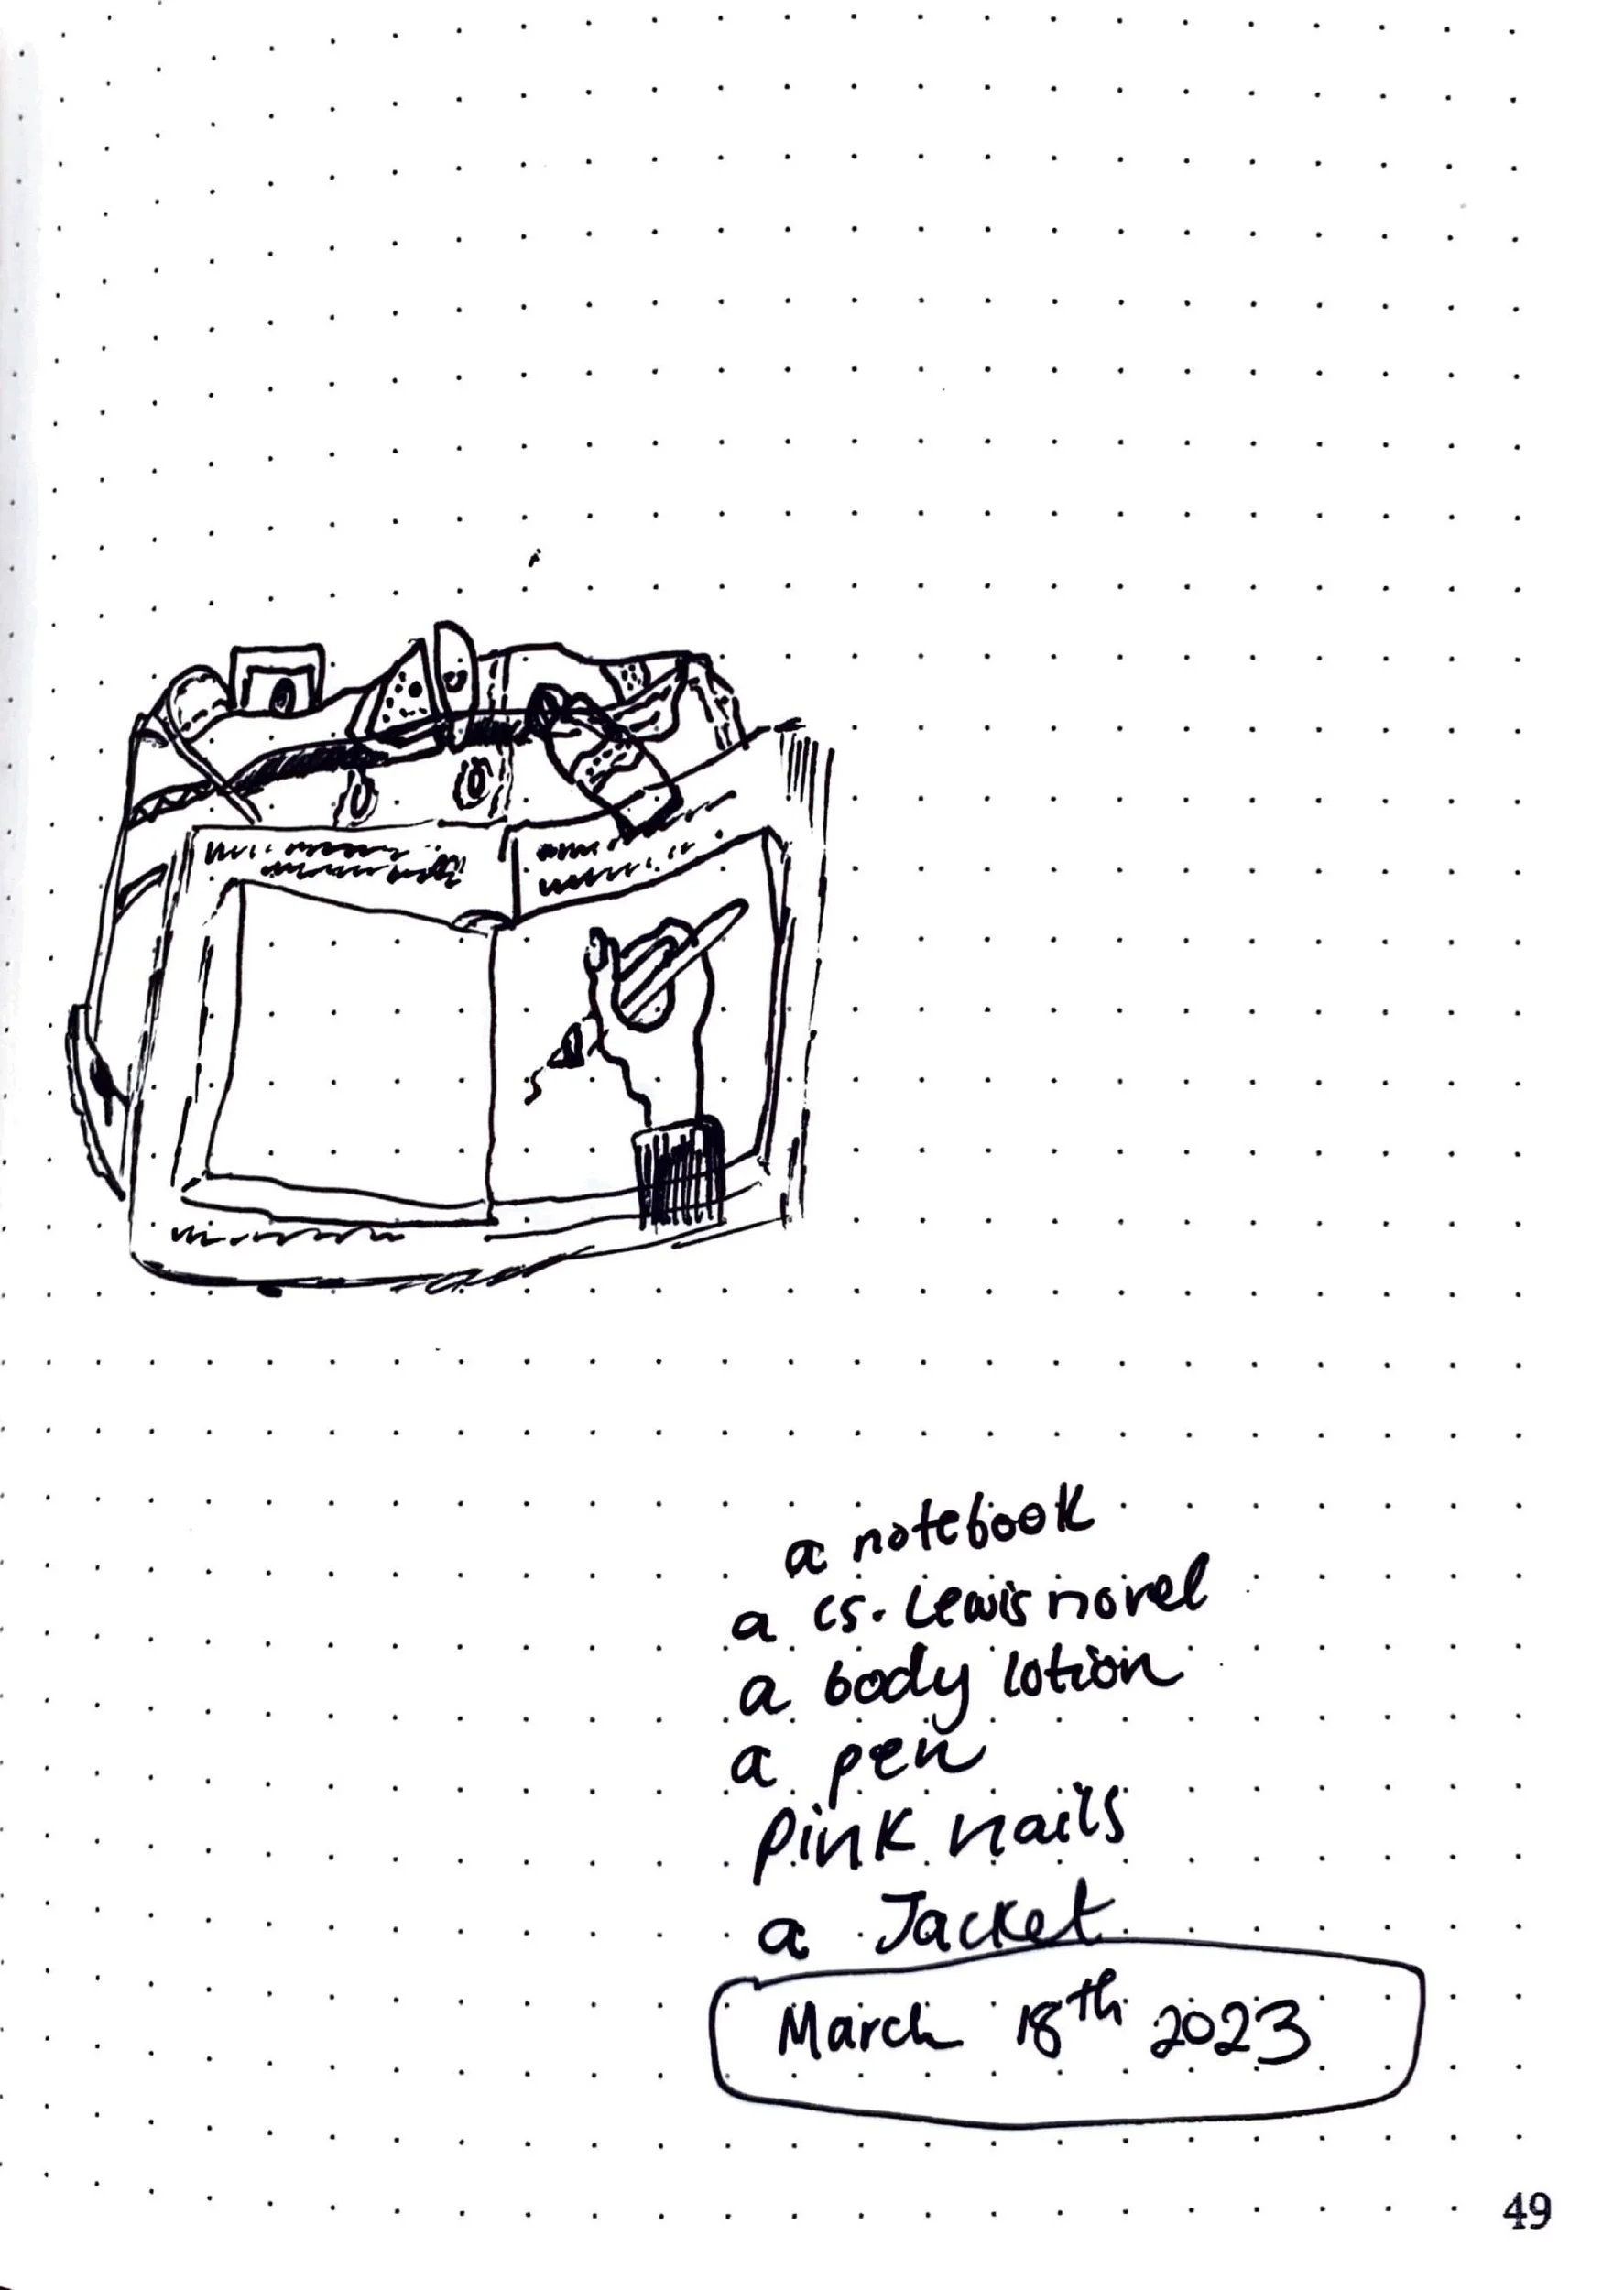 a notebook
a cs. Lewis novel
a body lotion
a pen
pink nails
a Jacket
March 18th 2023
49